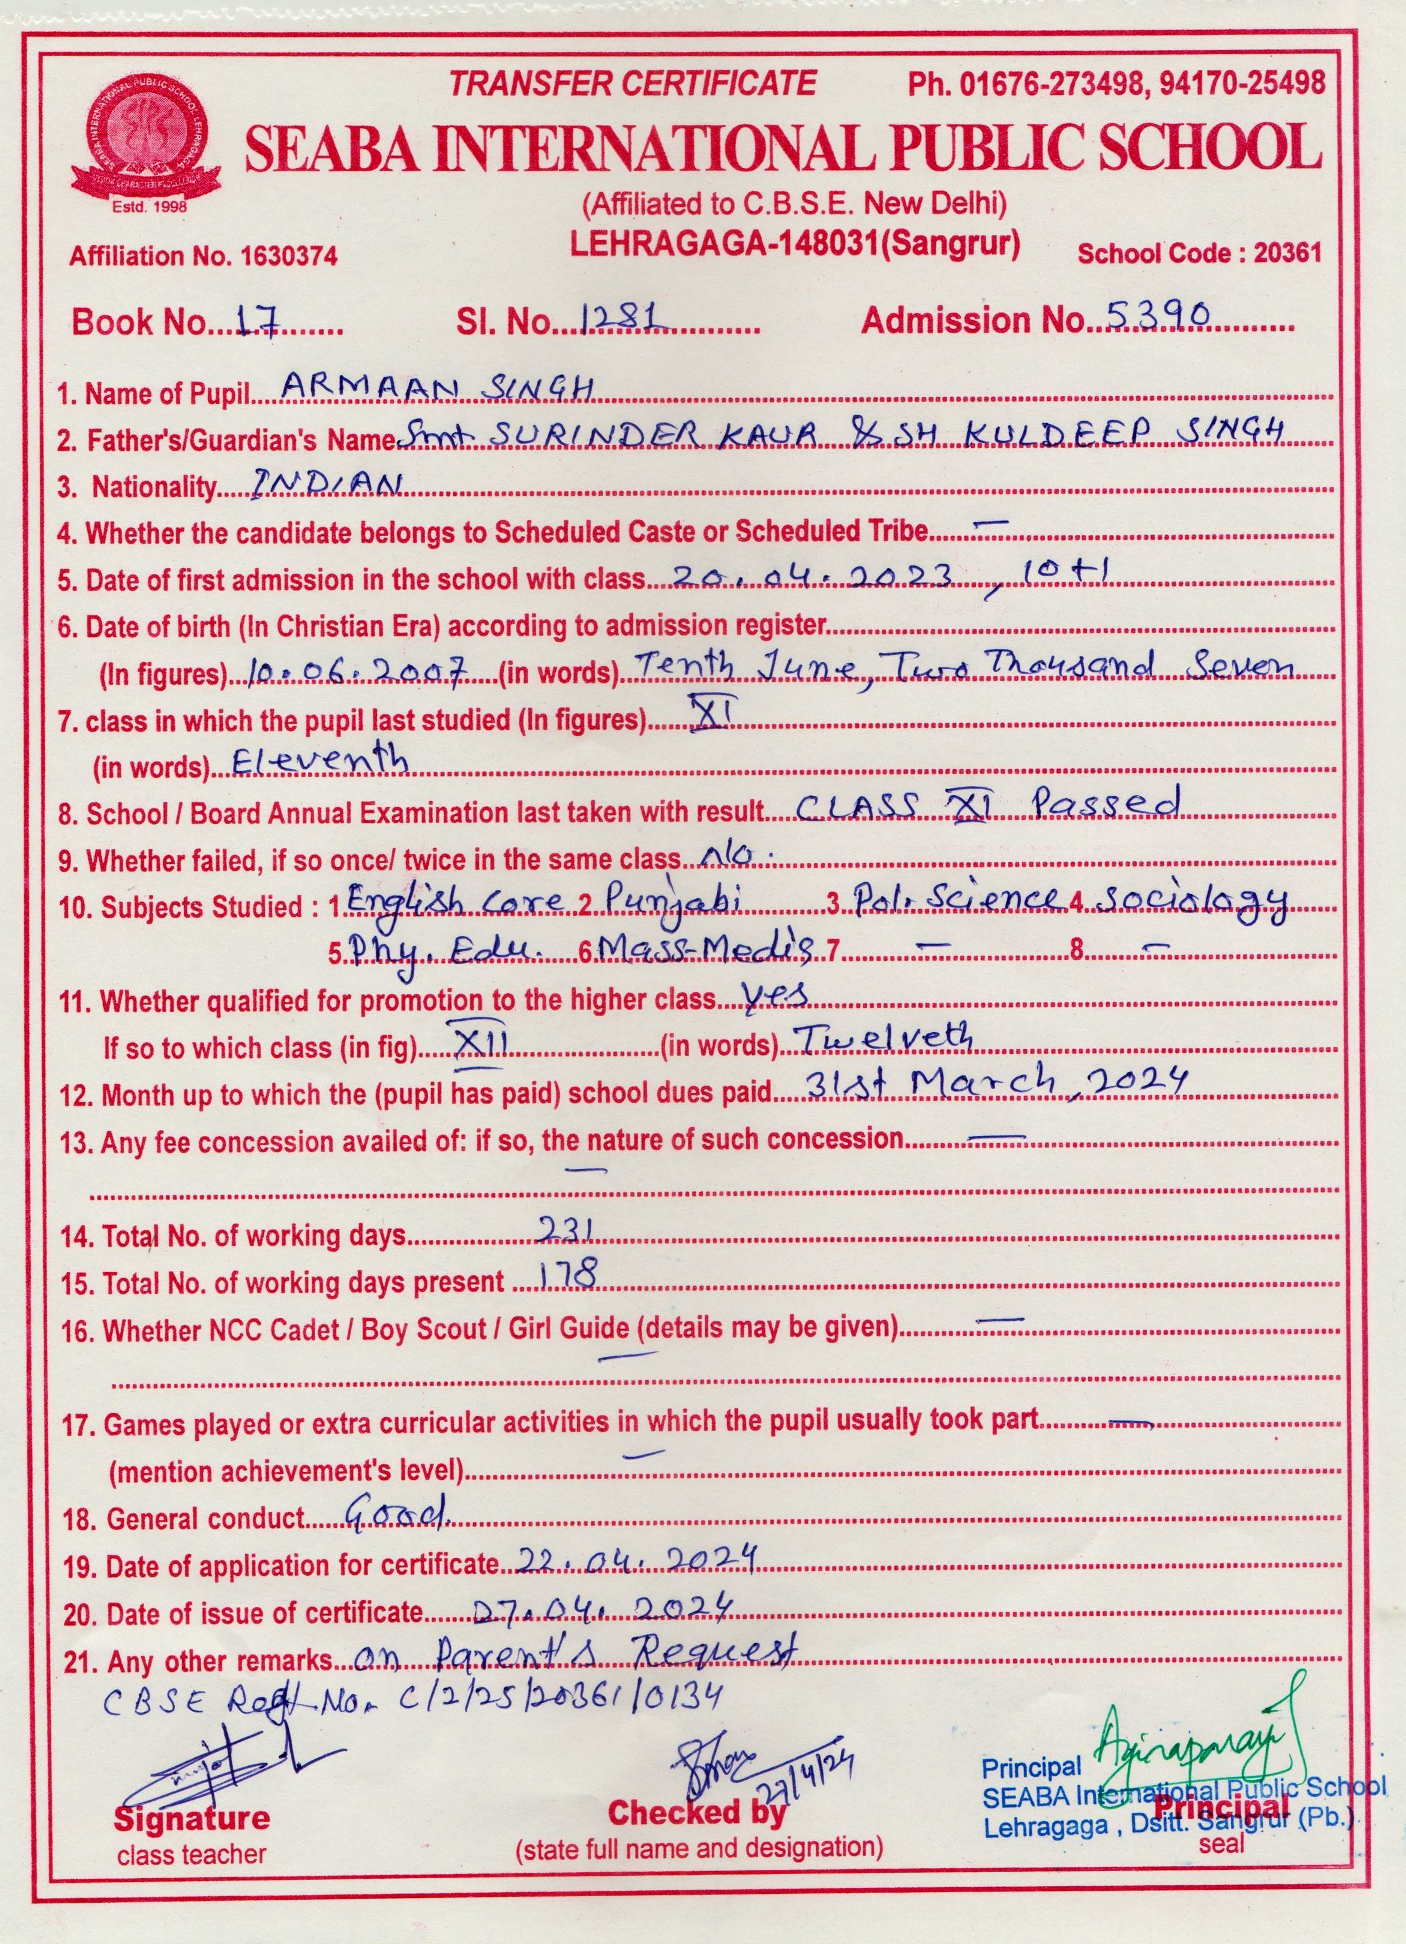 TRANSFER CERTIFICATE Ph. 01676-273498, 94170-25498
SEABA INTERNATIONAL PUBLIC SCHOOL
SEABA INTERNATIONAL PUBLIC SCHOOL LEHRAGAGA
Estd. 1998
(Affiliated to C.B.S.E. New Delhi)
Affiliation No. 1630374 LEHRAGAGA-148031(Sangrur) School Code : 20361
Book No....17....... Sl. No...1281............ Admission No..5390..........
1. Name of Pupil....ARMAAN SINGH
2. Father's/Guardian's Name Smt SURINDER KAUR & SH KULDEEP SINGH
3. Nationality.....INDIAN
4. Whether the candidate belongs to Scheduled Caste or Scheduled Tribe......—
5. Date of first admission in the school with class...20.04.2023, 10+1
6. Date of birth (In Christian Era) according to admission register
(In figures)..10.06.2007....(in words)..Tenth June, Two Thousand Seven
7. class in which the pupil last studied (In figures)......XI
(in words)...Eleventh
8. School / Board Annual Examination last taken with result....CLASS XI Passed
9. Whether failed, if so once/ twice in the same class..No.
10. Subjects Studied : 1.English Core 2.Punjabi 3.Pol. Science 4.Sociology
5.Phy. Edu. 6.Mass-Media 7.— 8.—
11. Whether qualified for promotion to the higher class...yes
If so to which class (in fig).....XII.....(in words)..Twelveth
12. Month up to which the (pupil has paid) school dues paid....31st March, 2024
13. Any fee concession availed of: if so, the nature of such concession.......—
—
14. Total No. of working days.............231
15. Total No. of working days present ...178
16. Whether NCC Cadet / Boy Scout / Girl Guide (details may be given)..........—
—
17. Games played or extra curricular activities in which the pupil usually took part.........—
(mention achievement's level)..........—
18. General conduct.....Good.
19. Date of application for certificate..22.04.2024
20. Date of issue of certificate......27.04.2024
21. Any other remarks...on Parent's Request
CBSE Regt. No. C/2/25/20361/0134
27/4/24
Principal
SEABA International Public School
Lehragaga , Dsitt. Sangrur (Pb.)
Signature Checked by Principal
class teacher (state full name and designation) seal